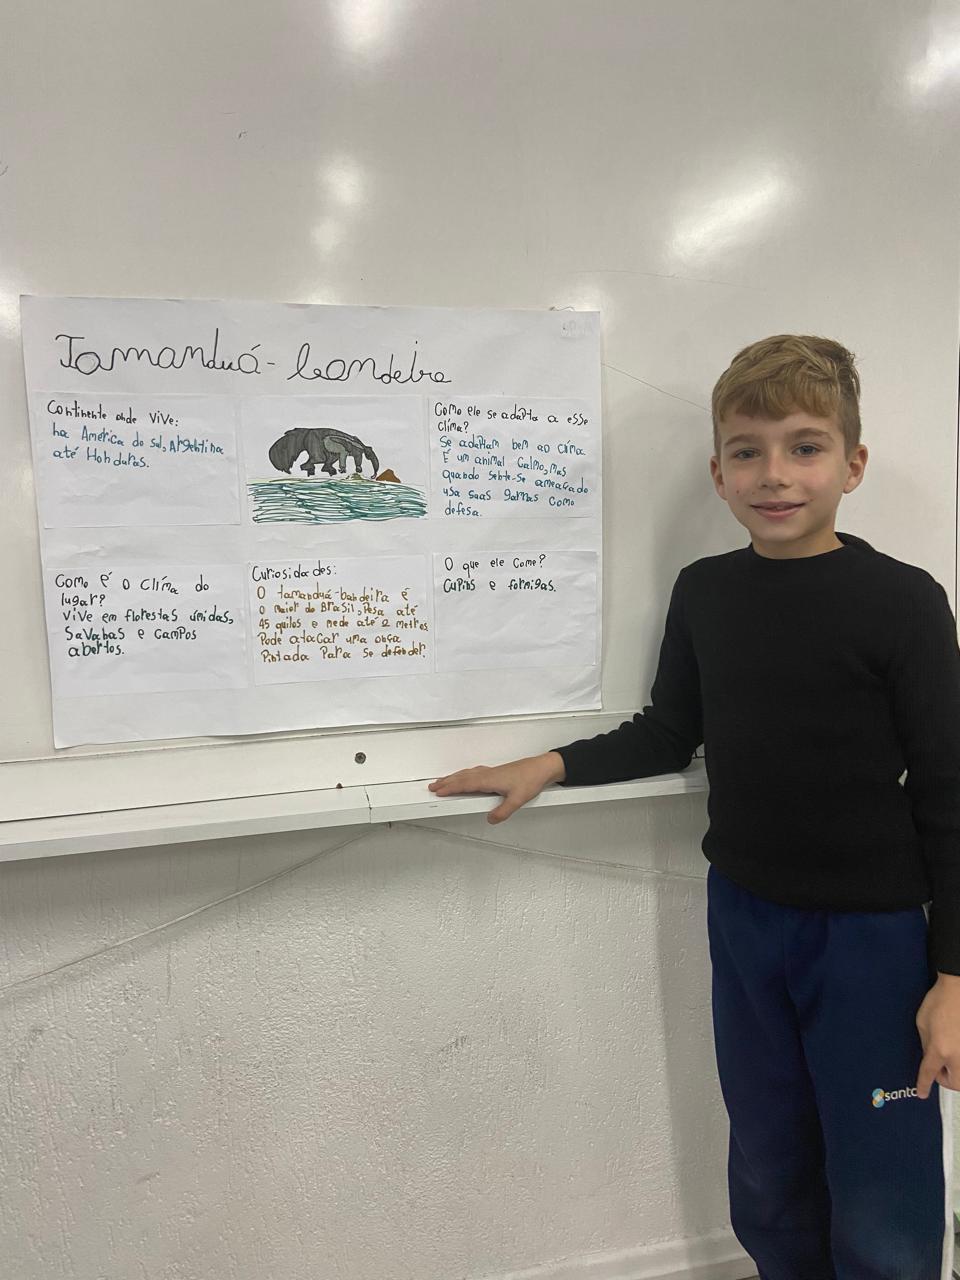 Tamanduá-bandeira
Continente onde vive:
na América do sul, Argentina
até Honduras.
Como ele se adapta a esse
clima?
Se adaptam bem ao clima
É um animal calmo, mas
quando sente-se ameaçado
usa suas garras como
defesa.
Como é o clima do
lugar?
Vive em florestas úmidas,
Savanas e campos
abertos.
Curiosidades:
O tamanduá-bandeira é
o maior do Brasil, Pesa até
45 quilos e mede até 2 metros
Pode atacar uma onça
Pintada Para se defender.
O que ele come?
Cupins e formigas.